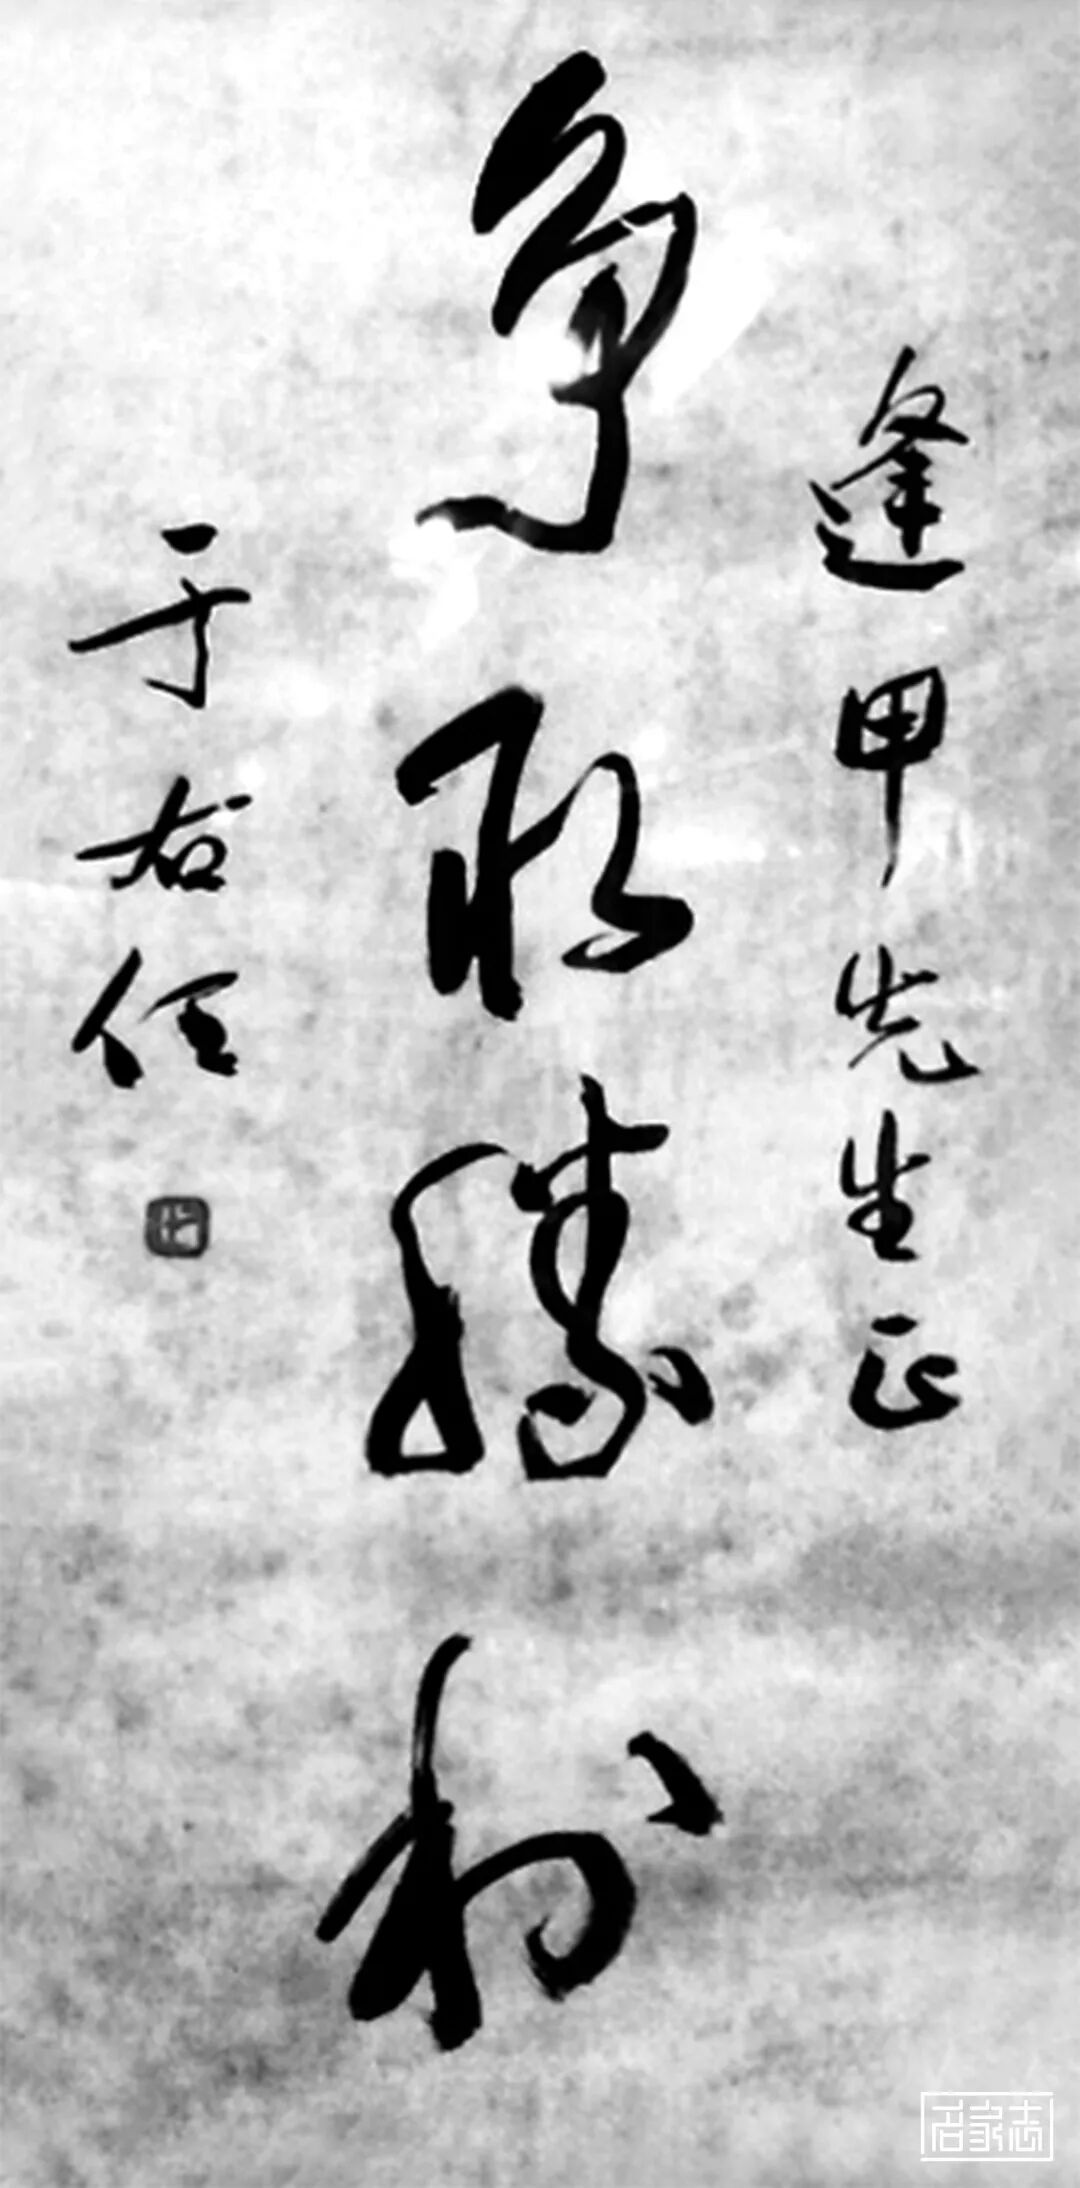 逢甲先生正
爭取勝利
于右任
名家志